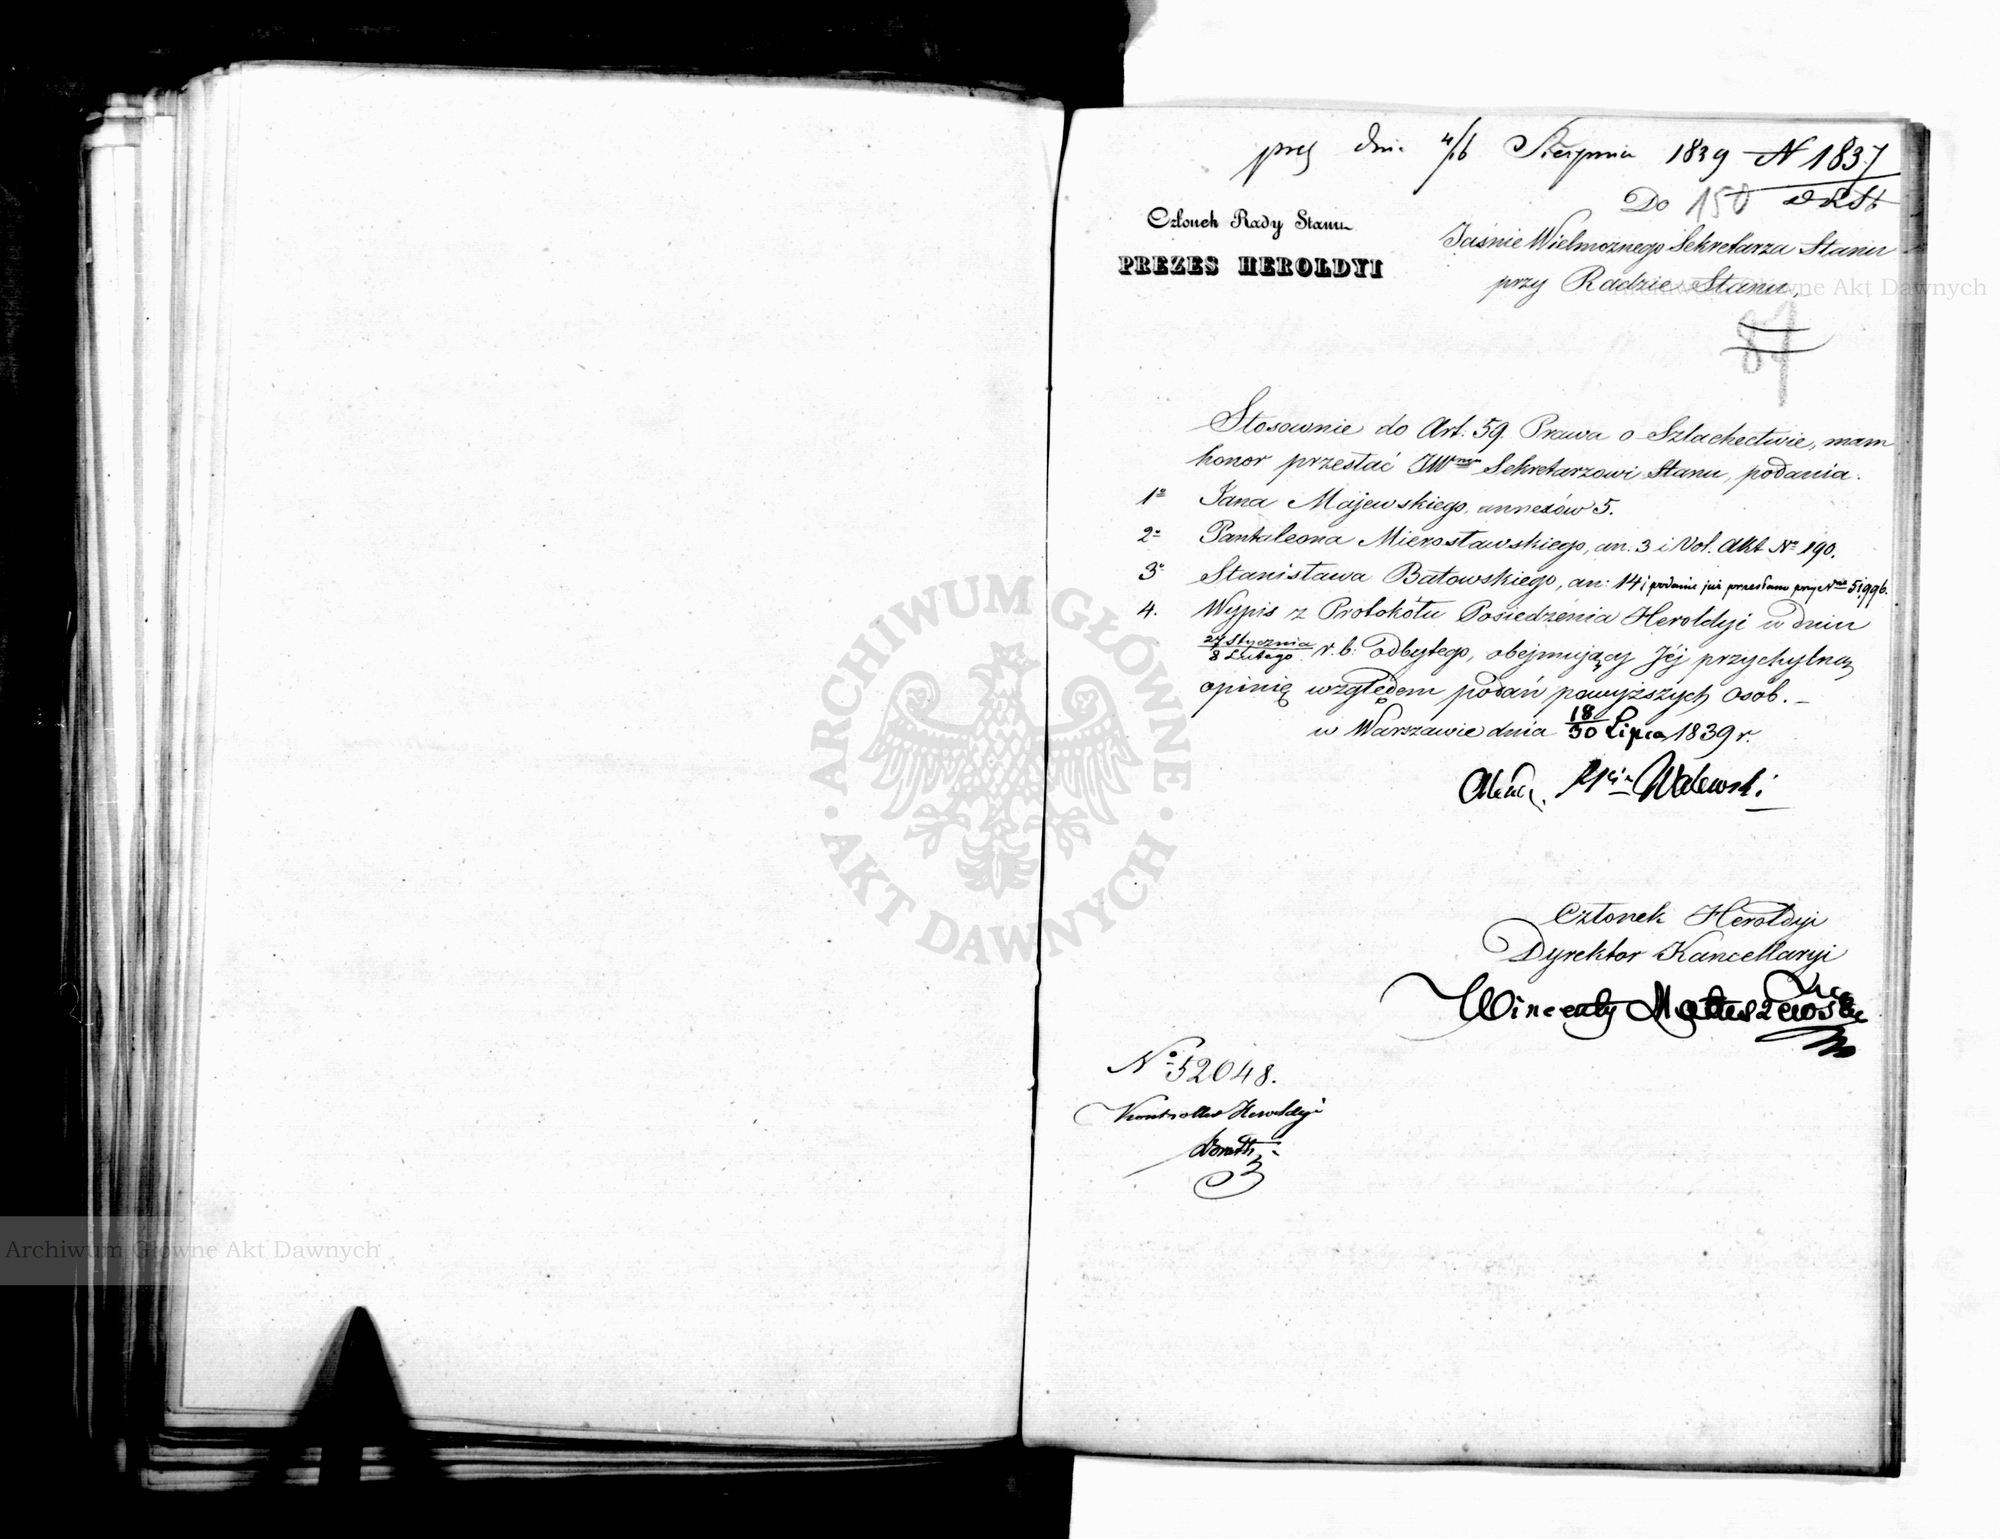 prez dnia 4/16 Sierpnia 1839 N 1837
Do 150
Członek Rady Stanu
PREZES HEROLDYI
Jaśnie Wielmożnego Sekretarza Stanu
przy Radzie Stanu,
87
Stosownie do Art: 59. Prawa o Szlachectwie, mam
honor przesłać JWmu Sekretarzowi Stanu, podania:
1o Jana Majewskiego, annexów 5.
2o Pantaleona Mierosławskiego, an. 3 i Vol. Akt No 190.
3o Stanisława Batowskiego, an: 14 i podanie już przesłane przy Nrze 51996.
4. Wypis z Protokółu Posiedzenia Heroldyi w dniu
27 Stycznia / 8 Lutego r. b: odbytego, obejmujący Jéj przychylną
opinię względem podań powyższych osób. –
w Warszawie dnia 18/30 Lipca 1839 r.
Walewski
Członek Heroldyi
Dyrektor Kancellaryi
Wincenty Matuszewski
No 52048.
Kontroller Heroldyi
ARCHIWUM GŁÓWNE
AKT DAWNYCH
Archiwum Główne Akt Dawnych
Archiwum Główne Akt Dawnych